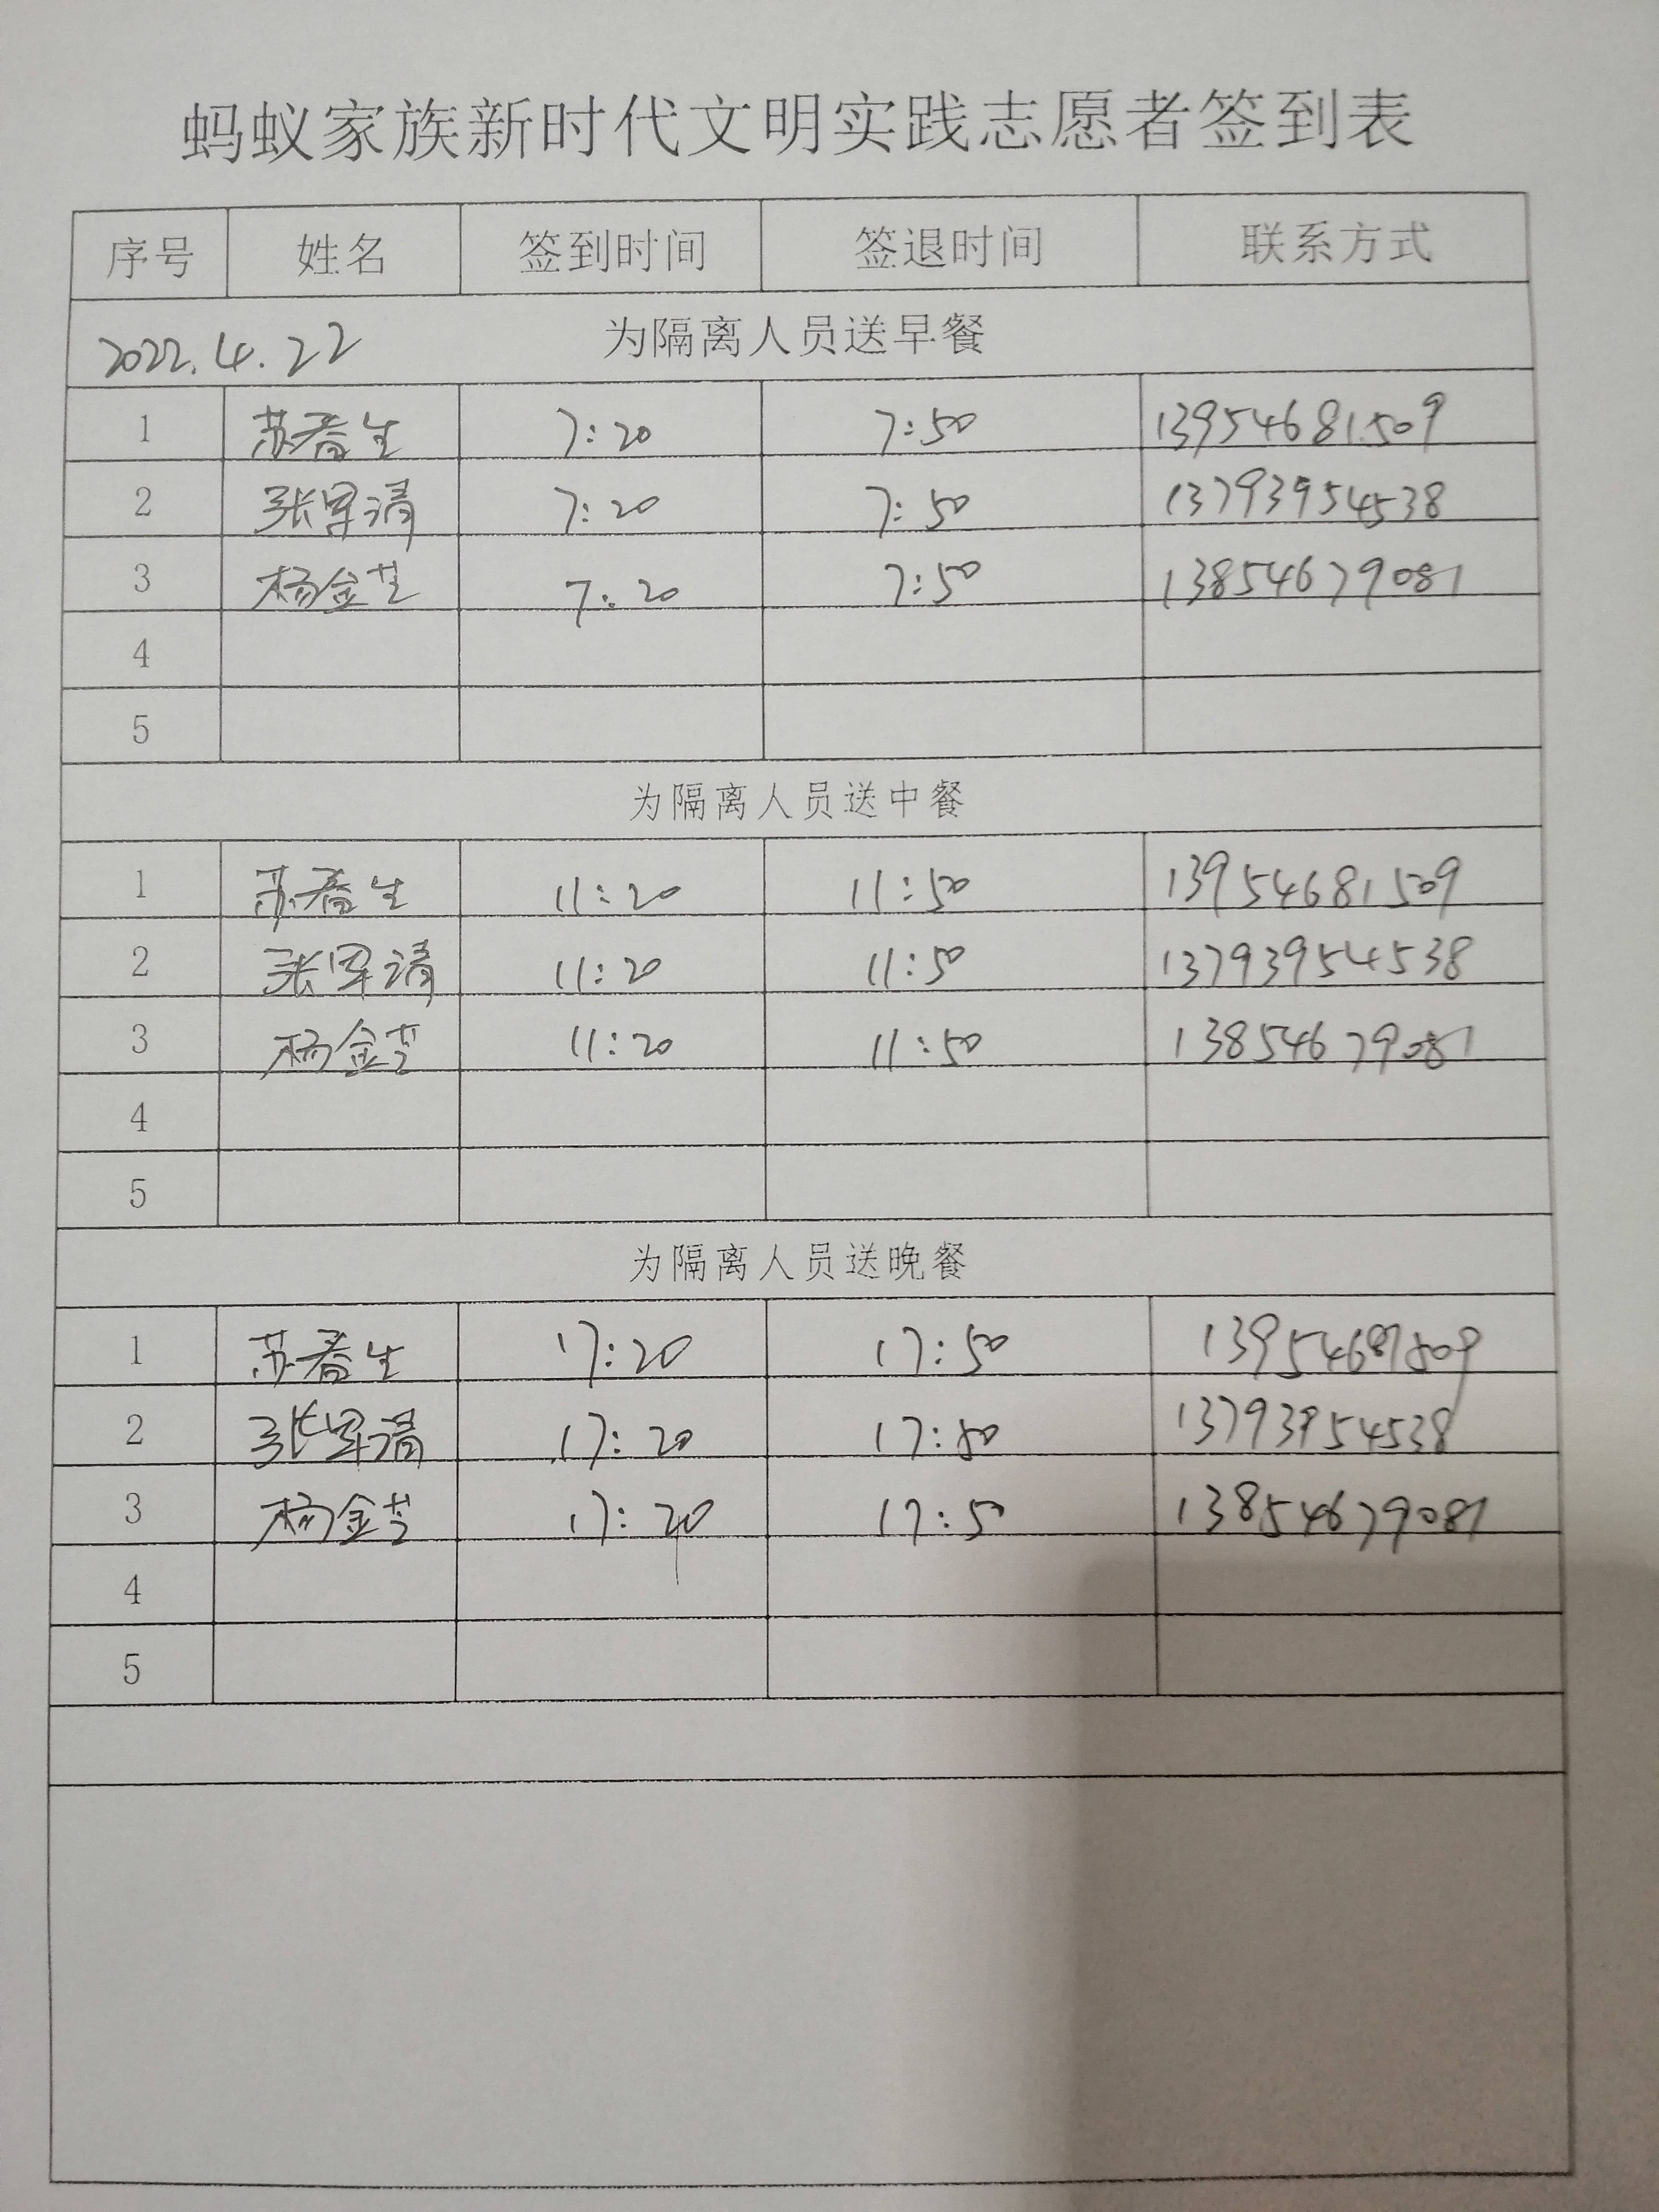 蚂蚁家族新时代文明实践志愿者签到表
序号 姓名 签到时间 签退时间 联系方式
2022.4.22 为隔离人员送早餐
1 苏春生 7:20 7:50 13954681509
2 张军清 7:20 7:50 13793954538
3 杨金芝 7:20 7:50 13854679081
4
5
为隔离人员送中餐
1 苏春生 11:20 11:50 13954681509
2 张军清 11:20 11:50 13793954538
3 杨金芝 11:20 11:50 13854679081
4
5
为隔离人员送晚餐
1 苏春生 17:20 17:50 13954681509
2 张军清 17:20 17:50 13793954538
3 杨金芝 17:20 17:50 13854679081
4
5